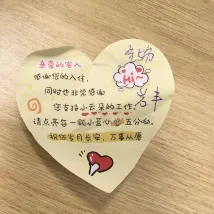 亲爱的客人
感谢您的入住,
同时也非常感谢
您支持小云朵的工作!
请点亮每一颗小蓝心哦五分哦,
祝您岁月长安,万事从愿
Hi